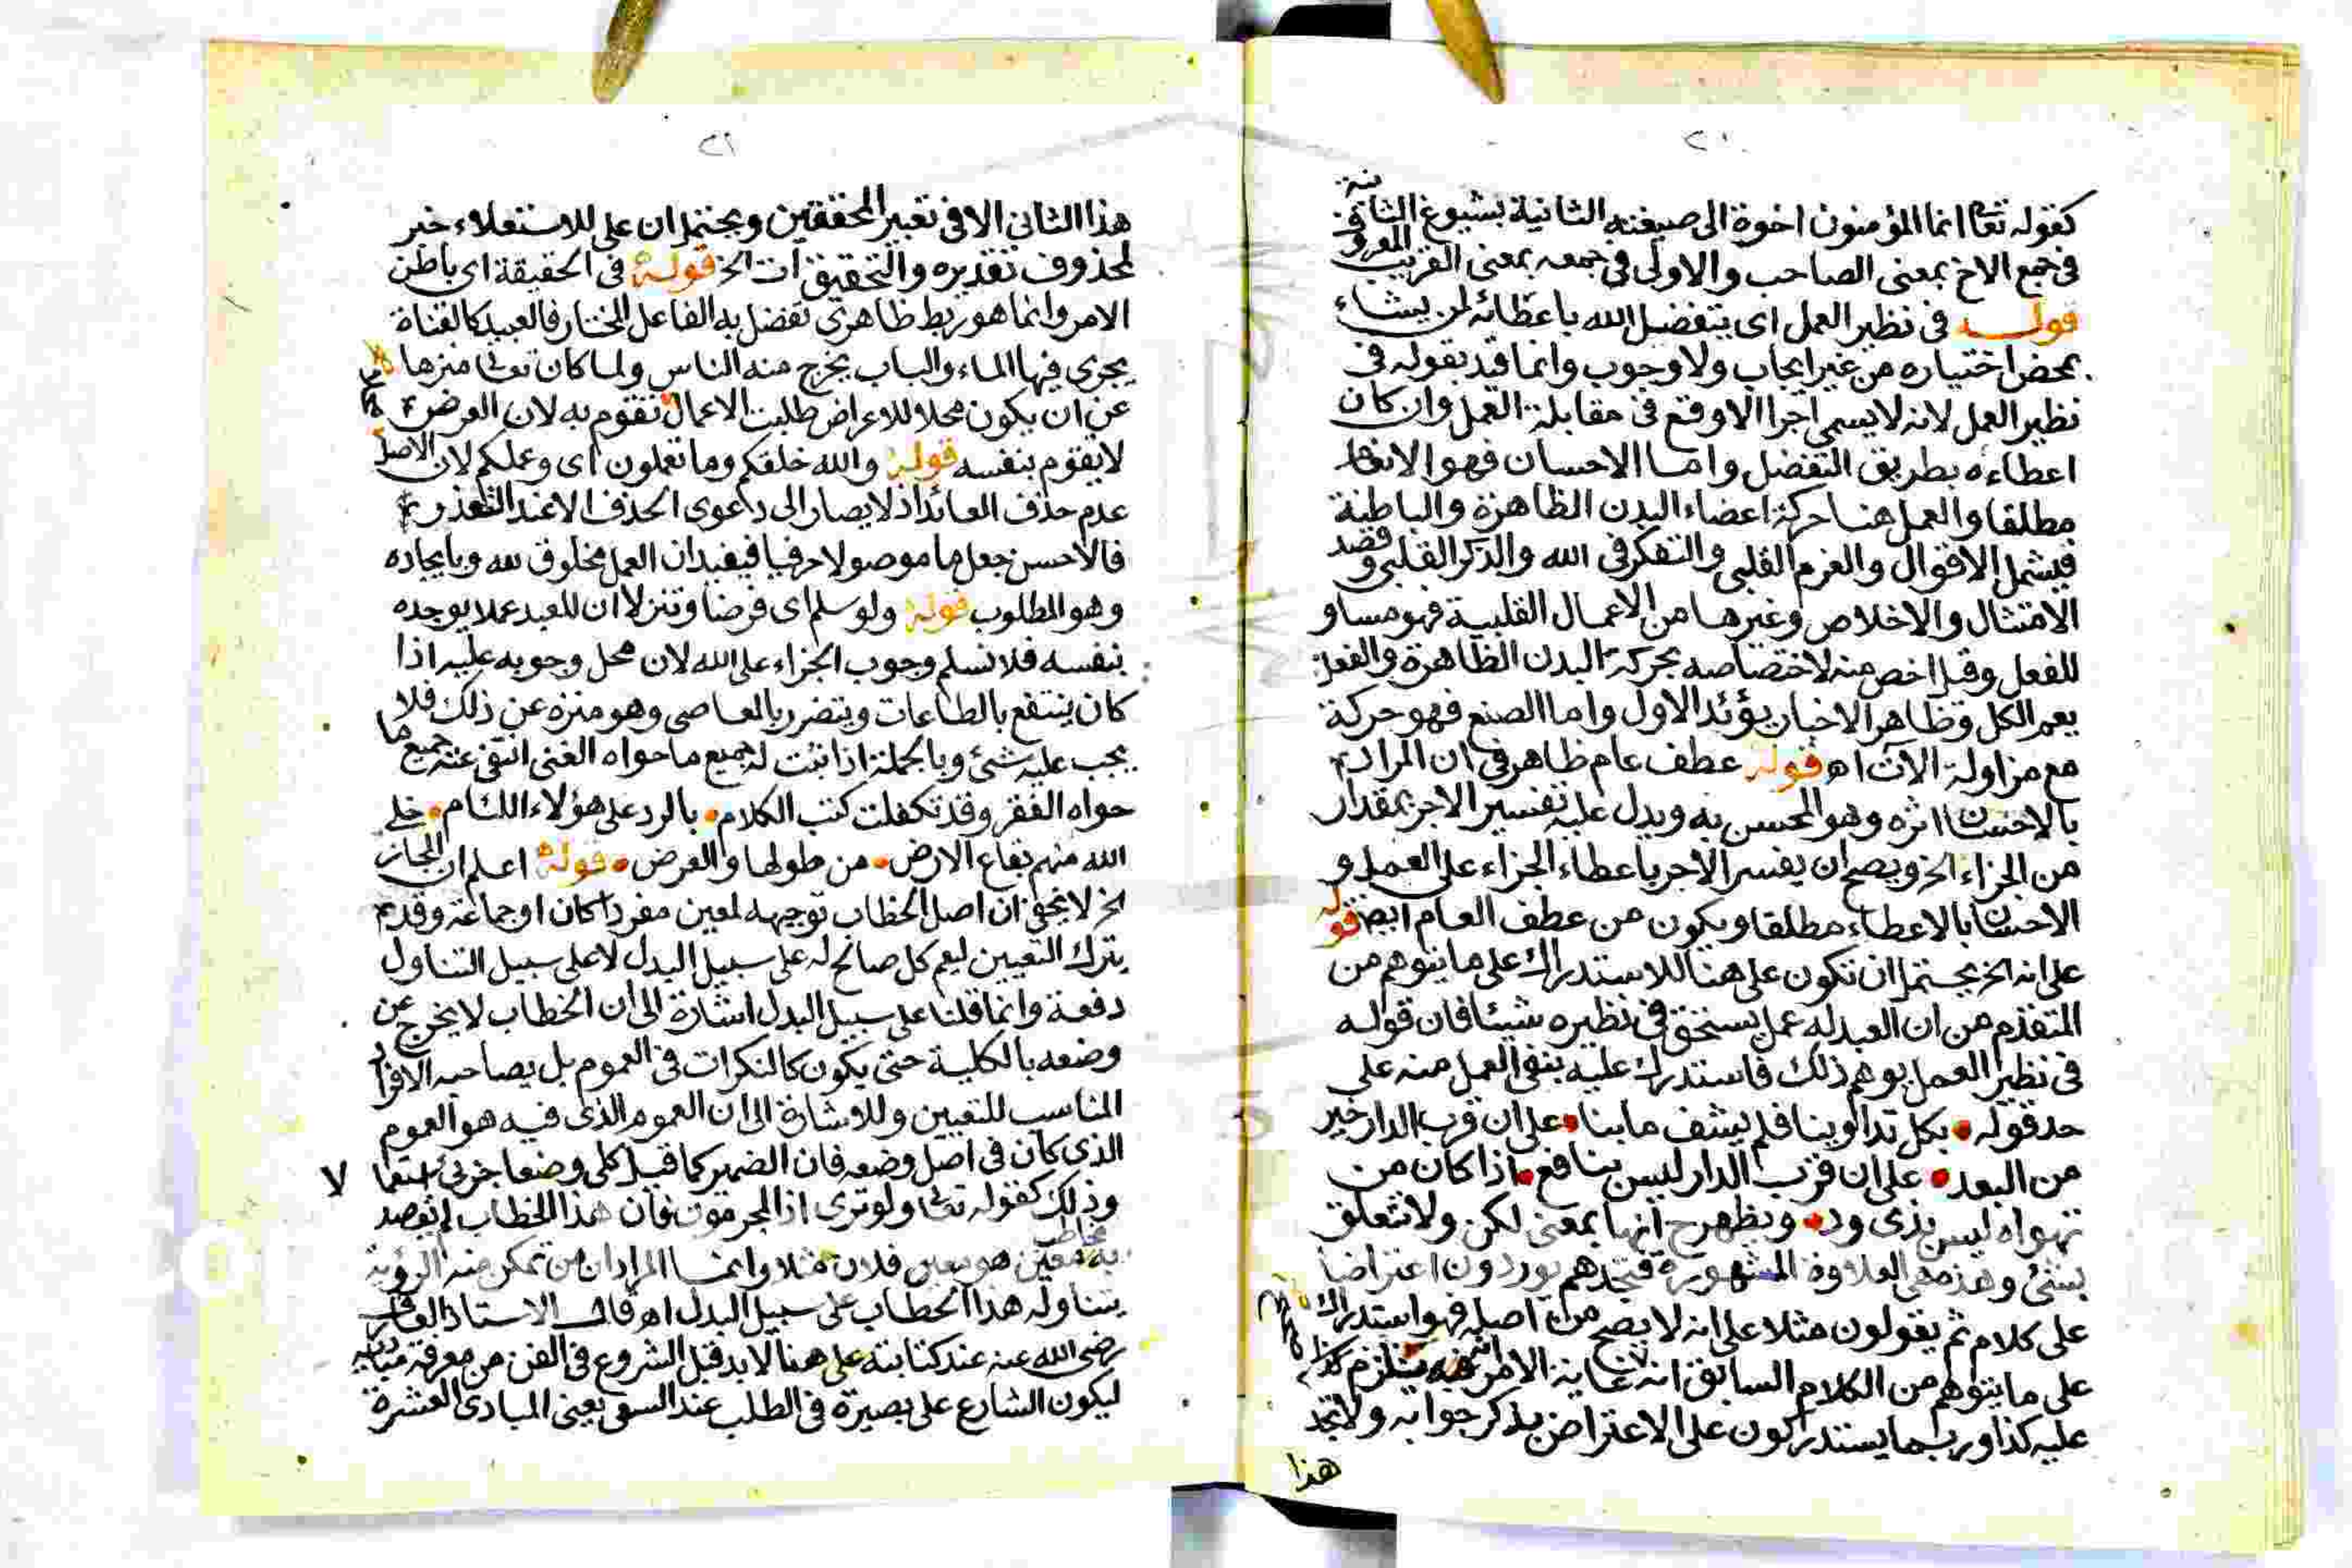 ٢٠
كقوله تعا انما المؤمنون اخوة الى صيغته الثانية بشيوع الثانية
فى جمع الاخ بمعنى الصاحب والاولى فى جمعه بمعنى القريب
قوله فى نظير العمل اى يتفضل الله باعطائه لمن يشاء
بمحض اختياره من غير ايجاب ولا وجوب وانما قيد بقوله فى
نظير العمل لانه لا يسمى اجرا الا وقع فى مقابلة العمل وان كان
اعطاءه بطريق التفضل واما الاحسان فهو الانعام
مطلقا والعمل هنا حركة اعضاء البدن الظاهرة والباطنة
فيشمل الاقوال والعزم القلبى والتفكر فى الله والذكر القلبى وقصد
الامتثال والاخلاص وغيرها من الاعمال القلبية فهو مساو
للفعل وقيل اخص منه لاختصاصه بحركة البدن الظاهرة والفعل
يعم الكل وظاهر الاخبار يؤيد الاول واما الصنع فهو حركة
مع مزاولة الآت اه قوله عطف عام ظاهر فى ان المراد
بالاحسان اثره وهو المحسن به ويدل عليه تفسير الاجر بمقدار
من الجزاء الخ ويصح ان يفسر الاجر باعطاء الجزاء على العمل و
الاحسان بالاعطاء مطلقا ويكون من عطف العام ايضا قوله
على انه الخ يحتمل ان تكون على هنا للاستدراك على ما يتوهم من
المتقدم من ان العبد له عمل يستحق فى نظيره شيئا فان قوله
فى نظير العمل يوهم ذلك فاستدرك عليه بنفى العمل منه على
حد قوله بكل تداوينا فلم يشف ما بنا على ان قرب الدار خير
من البعد على ان قرب الدار ليس بنافع اذا كان من
تهواه ليس بذى ود ويظهر ح انها بمعنى لكن ولا تتعلق
بشئ وهذه هى العلاوة المشهورة فتجدهم يوردون اعتراضا
على كلام ثم يقولون مثلا على انه لا يصح من اصله فهو استدراك
على ما يتوهم من الكلام السابق انه غاية الامر يلزم
عليه كذا وربما يستدركون على الاعتراض بذكر جوابه ولا تجد
هذا
٢١
هذا الثانى الا فى تعبير المحققين ويحتمل ان على للاستعلاء خبر
لمحذوف تقديره والتحقيق ان الخ قوله فى الحقيقة اى باطن
الامر وانما هو ربط ظاهرى تفضل به الفاعل المختار فالعبيد كالقناة
يجرى فيها الماء والباب يخرج منه الناس ولما كان تعالى منزها
عن ان يكون محلا للاعراض طلبت الاعمال تقوم به لان العرض
لا يقوم بنفسه قوله والله خلقكم وما تعملون اى وعملكم لان الاصل
عدم حذف العائد اذ لا يصار الى دعوى الحذف الا عند التعذر
فالاحسن جعل ما موصولا حرفيا فيفيد ان العمل مخلوق لله وبايجاده
وهو المطلوب قوله ولو سلم اى فرضا وتنزلا ان للعبد عملا يوجده
بنفسه فلا نسلم وجوب الجزاء على الله لان محل وجوبه عليه اذا
كان ينتفع بالطاعات ويتضرر بالمعاصى وهو منزه عن ذلك فلا
يجب عليه شئ وبالجملة اذا ثبت له جميع ما حواه الغنى انتفى عنه جميع ما
حواه الفقر وقد تكفلت كتب الكلام بالرد على هؤلاء اللئام خلى
الله منهم بقاع الارض من طولها والعرض قوله اعلم ان المجاز
الخ لا يخفى ان اصل الخطاب توجيهه لمعين مفردا كان او جماعة وقد
يترك التعيين ليعم كل صالح له على سبيل البدل لا على سبيل التناول
دفعة وانما قلنا على سبيل البدل اشارة الى ان الخطاب لا يخرج عن
وضعه بالكلية حتى يكون كالنكرات فى العموم بل يصاحبه الافراد
المناسب للتعيين وللاشارة الى ان العموم الذى فيه هو العموم
الذى كان فى اصل وضعه فان الضمير كما قيل كلى وضعا جزئى استعما
لا
وذلك كقوله تعالى ولو ترى اذ المجرمون فان هذا الخطاب لم يقصد
به مخاطب معين هو معين فلان مثلا وانما المراد ان من تمكن منه الرؤية
يتناوله هذا الخطاب على سبيل البدل اه قال الاستاذ
رضى الله عنه عند كتابته على هنا لا بد قبل الشروع فى الفن من معرفة مباديه
ليكون الشارع على بصيرة فى الطلب عند السعى يعنى المبادى العشرة